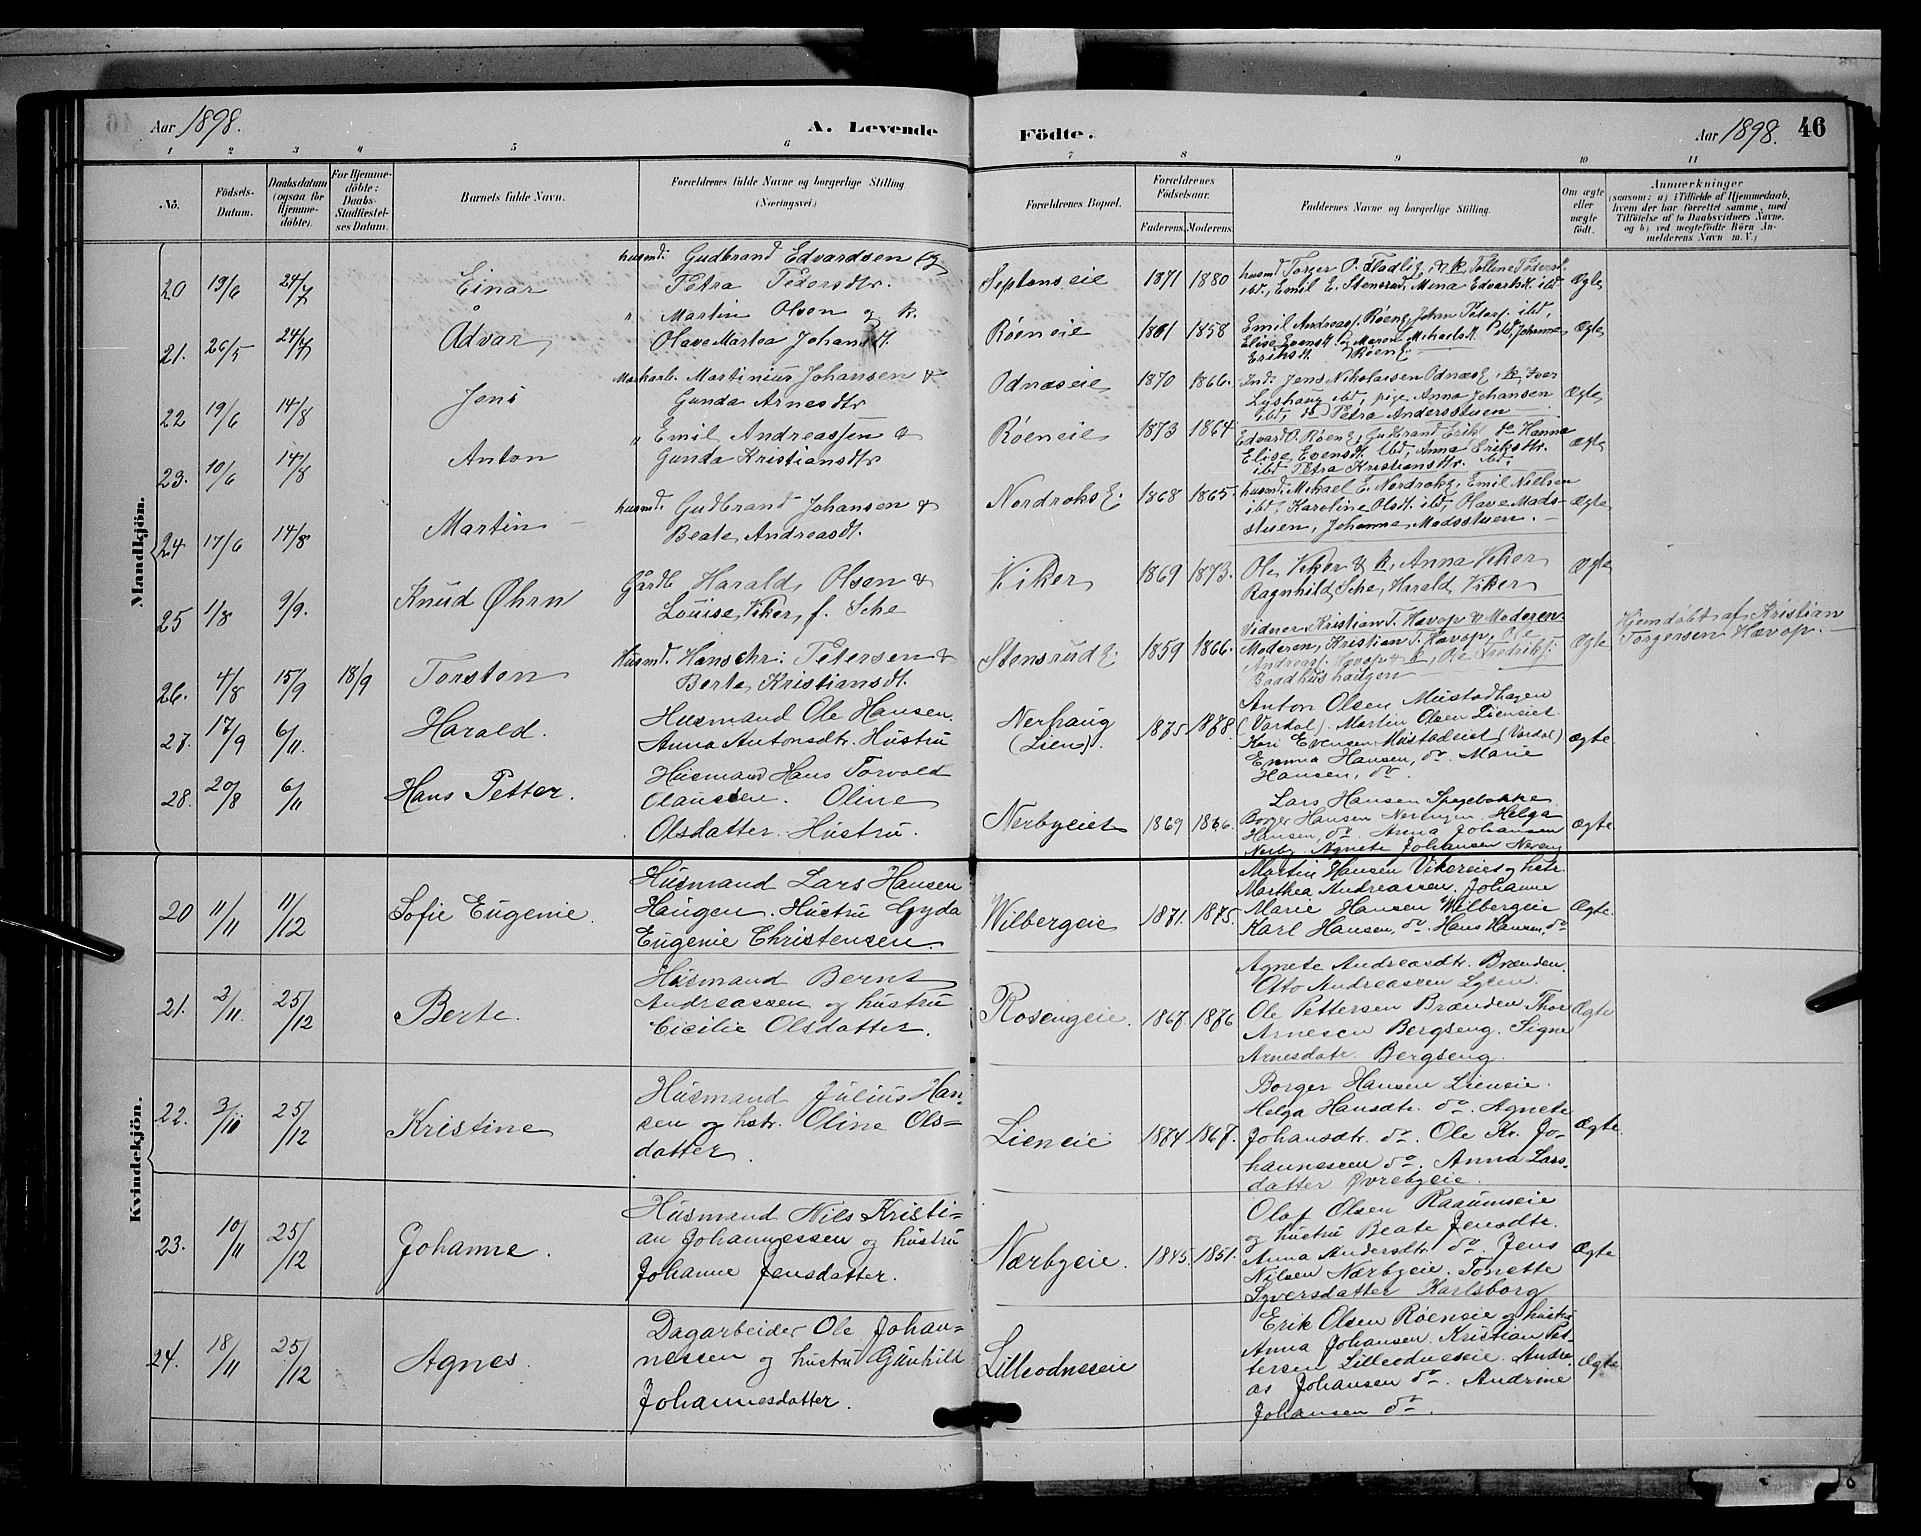 Aar 1898. A. Levende Födte. Aar 1898. 46
1 2 3 4 5 6 7 8 9 10 11
No. Födsels-Datum. Daabsdatum (ogsaa for Hjemme-döbte). For Hjemme-döbte: Daabs-Stadfæstelses Datum. Barnets fulde Navn. Forældrenes fulde Navne og borgerlige Stilling (Næringsvei.) Forældrenes Bopæl. Forældrenes Födselsaar. Faderens. Moderens. Faddernes Navne og borgerlige Stilling. Om ægte eller uægte födt. Anmærkninger (saasom: a) i Tilfælde af Hjemmedaab, hvem der har forrettet samme, med Tilföielse af to Daabsvidners Navne, og b) ved uægtefödte Börn Anmelderens Navn m. V.)
Mandkjön.
20 19/6 24/7 Einar husmd. Gudbrand Edvardsen og
Petra Pedersdtr. Septonseie 1871 1880 husmd Torger O. Fladlie, & k. Toline Pedersd.
ibd., Emil E. Stensrud, Mina Edvardsd. ibd Ægte
21. 26/5 24/7 Ådvar " Martin Olsen og k.
Olave Martea Johansdt. Røeneie 1858 Emil Andreass. Røene, Johan Peters. ibd,
Elise Evensdt. og Maren Michaelsdt. ibd, Johanne
Eriksdt. Røene Ægte
22 19/6 14/8 Jens Martinius Johansen &
Gunda Arnesdtr Odnæseie 1870 1866. Ind. Jens Nikolaisen Odnæse, k, Iver
Lyshaug ibd, pige Anna Johansen
ibd, do Petra Andersstuen Ægte
23. 10/6 14/8 Anton " Emil Andreassen &
Gunda Kristiansdtr Røeneie 1873 1864 Edvard O. Røene, Gudbrand Erik. Hanna
Elise Evensdt. ibd, Anna Eriksdtr.
ibd Petra Kristiansdtr. ibd, Ægte
24 17/6 14/8 Martin husmd. Gudbrand Johansen &
Beate Andreasdt. Nordroks E. 1868 1865. husmd. Mikael E. Nordroke, Emil Nielsen
ibd, Karoline Olsdt. ibd, Olave Mads-
stuen, Johanne Madsstuen. Ægte
25 1/8 9/9. Knud Øhrn Gårdb Harald Olsen &
Louise Viker, f. Sche Viker 1869 1873. Ole Viker & k, Anna Viker
Ragnhild Sche, Harald Viker Ægte
26. 4/8 15/9 18/9 Torsten Husmd. Hans Chr: Petersen &
Berte Kristiansdt. Stensrud E. 1859 1866. Vidner, Kristian T. Havop & Moderen
Moderen, Kristian T. Havop, Ole
Andreass. Havop & k, Ole Fredriks:
Baadhushaugen Ægte Hjemdøbt af Kristian
Torgersen Havop.
27. 17/9 6/11. Harald. Husmand Ole Hansen.
Anna Antonsdtr. Hustru Nerhaug
(Lien). 1875 1878. Anton Olsen Mustadhagen
(Vardal). Martin Olsen Lieneiet
Kari Evensen Mustadeiet (Vardal)
Emma Hansen, do. Marie
Hansen, do. Ægte
28. 20/8 6/11 Hans Petter. Husmand Hans Torvald
Olaussen. Oline
Olsdatter. Hustru. Nerbyeiet 1869 1866. Lars Hansen
Borger Hansen Helga
Hansen, do. Anna Johansen
Nerby. Agnete Johansen Ægte
Kvindekjön.
20 11/11 11/12 Sofie Eugenie. Husmand Lars Hansen
Haugen. Hustru Gyda
Eugenie Christensen. Wilbergeie 1871. 1875. Martin Hansen Vikereie og hstr.
Marthea Andreassen. Johanne
Marie Hansen Wilbergeie
Karl Hansen, do. Hans Hansen, do Ægte.
21. 2/11. 25/12 Berte. Husmand Bernt
Andreassen og hustru
Cicilie Olsdatter. Rosengeie. 1867. 1876 Agnete Andreasdtr. Brænden.
Otto Andreassen Lyen.
Ole Pettersen Brænden. Thor
Arnesen Bergseng. Signe
Arnesdatr. Bergseng. Ægte
22. 3/11 25/12 Kristine Husmand Julius Han-
sen og hstr. Oline Ols=
datter. Lieneie 1874 1867. Borger Hansen Lieneie.
Helga Hansdtr. do. Agnete
Johansdtr. do. Ole Kr. Jo-
hannessen do. Anna Lars-
datter Øvrebyeie. Ægte.
23. 10/11 25/12 Johanne. Husmand Nils Kristi=
an Johannessen og hustru
Johanne Jensdatter. Nærbyeie. 1845. 1851. Olaf Olsen Raaumseie
og hustru Beate Jensdtr.
Anna Andersdtr. do. Jens
Nilsen Nærbyeie. Tonette
Syversdatter Karlsborg Ægte
24. 18/11 25/12 Agnes. Dagarbeider Ole Johan=
nessen og hustru Gunhild
Johannesdatter. Lilleodneseie Erik Olsen Røeneie og hustru
Anna Johansen. Kristian Pet-
tersen Lilleodneseie. Andre-
as Johansen do. Andrine
Johansen do. Ægte